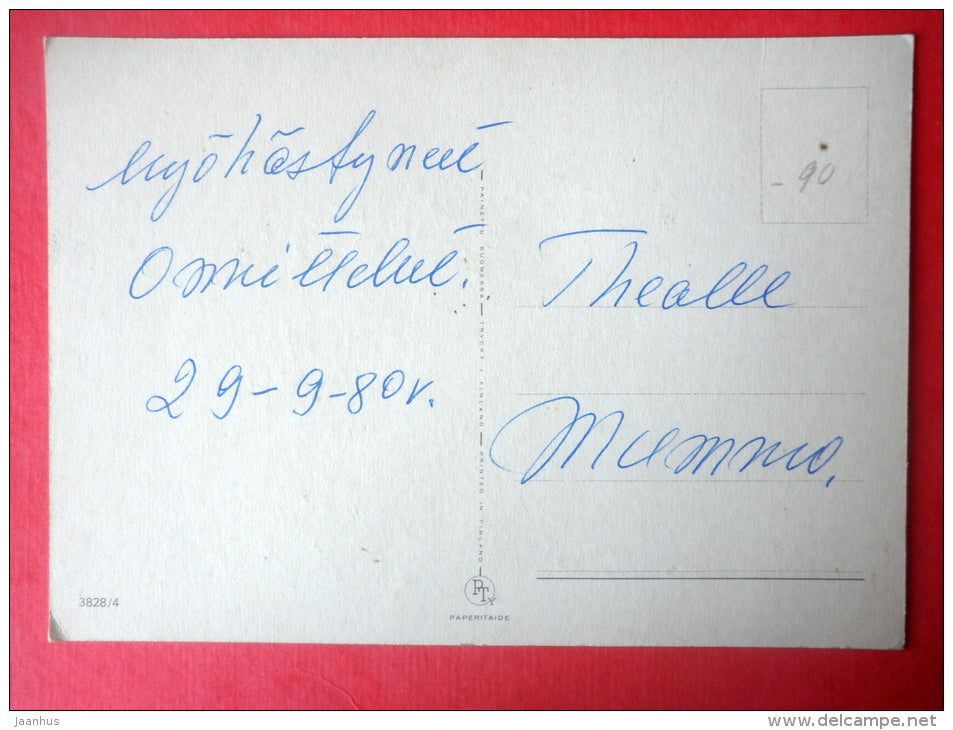 myöhästyneet
Onnittelut.
29-9-80v.
-90
Thealle
Mummo.
PAINETTU SUOMESSA — TRYCKT I FINLAND — PRINTED IN FINLAND
3828/4
PTy
PAPERITAIDE
Jaanhus
www.delcampe.net